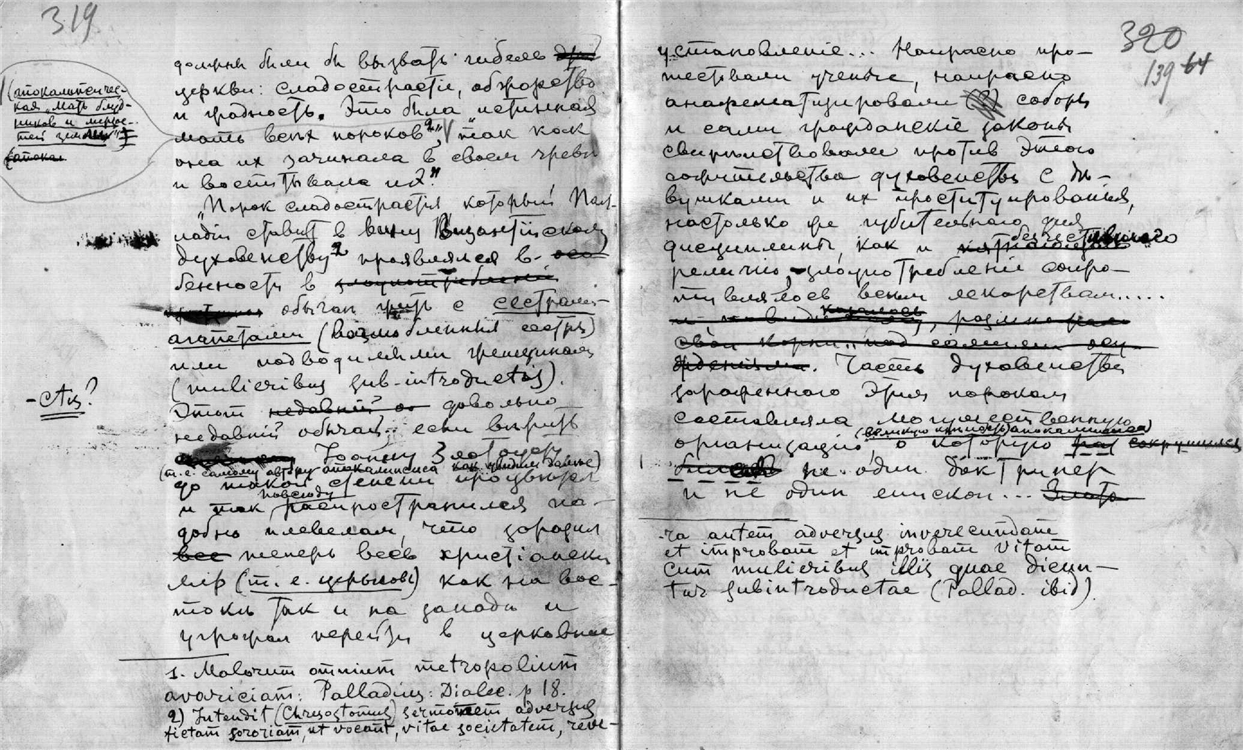 319
должны были бы вызвать гибель
церкви: сладострастіе, обжорство
и гордность. Это была „истинная
мать всѣхъ пороковъ", так как
она их зачинала в своем чревѣ
и воспитывала их".
(апокалиптичес-
кая „Мать блуд-
ников и мерзос-
тей земных"
„Порок сладострастія который Пал-
ладій ставит в вину Византійскому
духовенству² проявлялся в осо
бенности в
обычаѣ жить с сестрами-
агапетами (возлюбленныя сестры)
или подводимыми женщинами
(mulieribus sub-introductis).
-стя?
Этот недавній довольно
недавній обычай, если вѣрить
Іоанну Златоусту
(т.е. самому автору апокалипсиса как увидим далее)
до такой степени процвѣтал
и так повсюду распространился по-
добно плевелам, что заразил
все теперь весь христіанскій
мір (т. е. церковь) как на вос-
токѣ так и на западѣ и
угрожал перейти в церковное
1. Malorum omnium metropolium
avariciam: Palladius: Dialec. p 18.
2) Intendit (Chrysostomus) sermonem adversus
fictam sororiam, ut vocant, vitae societatem, reve-
320
139 64
установленіе... Напрасно про-
тествовали ученые, напрасно
анафематизировали соборы
и сами гражданскіе законы
свирѣпствовали против этого
сожительства духовенства с дѣ-
вушками и их проституированія,
настолько же губительного для
дисциплины, как и безчестившего
религію, злоупотребленіе сопро-
тивлялось всѣм лекарствам.....
Часть духовенства
зараженного этим пороком
составляла могущественную
организацію, о которую сокрушился
не один доктринер
и не один епископ...
-ra autem adversus inverecundam
et improbam et improbam vitam
cum mulieribus illis quae dicun-
tur subintroductae (Pallad. ibid).